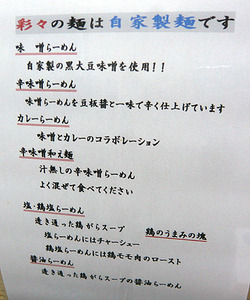 彩々の麺は自家製麺です
味　噌らーめん
自家製の黒大豆味噌を使用！！
辛味噌らーめん
味噌らーめんを豆板醤と一味で辛く仕上げています
カレーらーめん
味噌とカレーのコラボレーション
辛味噌和え麺
汁無しの辛味噌らーめん
よく混ぜて食べてください
塩・鶏塩らーめん
透き通った鶏がらスープ　鶏のうまみの塊
塩らーめんにはチャーシュー
鶏塩らーめんには鶏モモ肉のロースト
醤油らーめん
透き通った鶏がらスープの醤油らーめん